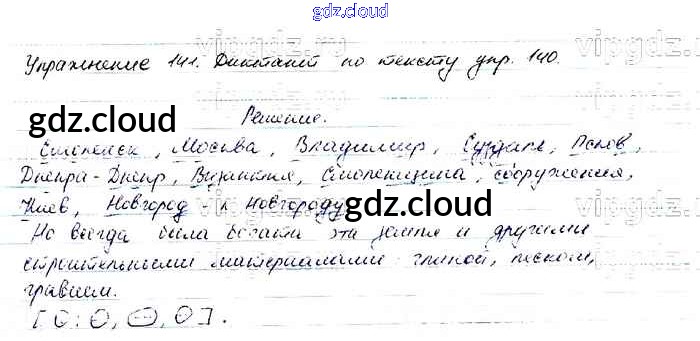 gdz.cloud
vipgdz.ru
Упражнение 141. Диктант по тексту упр. 140.
Решение.
gdz.cloud
Смоленск, Москва, Владимир, Суздаль, Псков,
Днепра - Днепр, Византия, Смоленщина, сооружения,
Киев, Новгород - к Новгороду
gdz.cloud
Но всегда была богата эта земля и другими
строительными материалами: глиной, песком,
гравием.
[О: О, О, О].